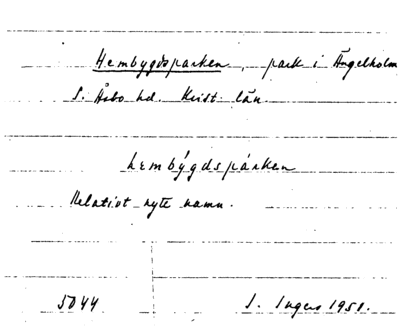 Hembygdsparken, park i Ängelholm
S. Åsbo hd. Krist. län.
hembýgdspárken
Relativt nytt namn.
5044 I. Ingers 1951.